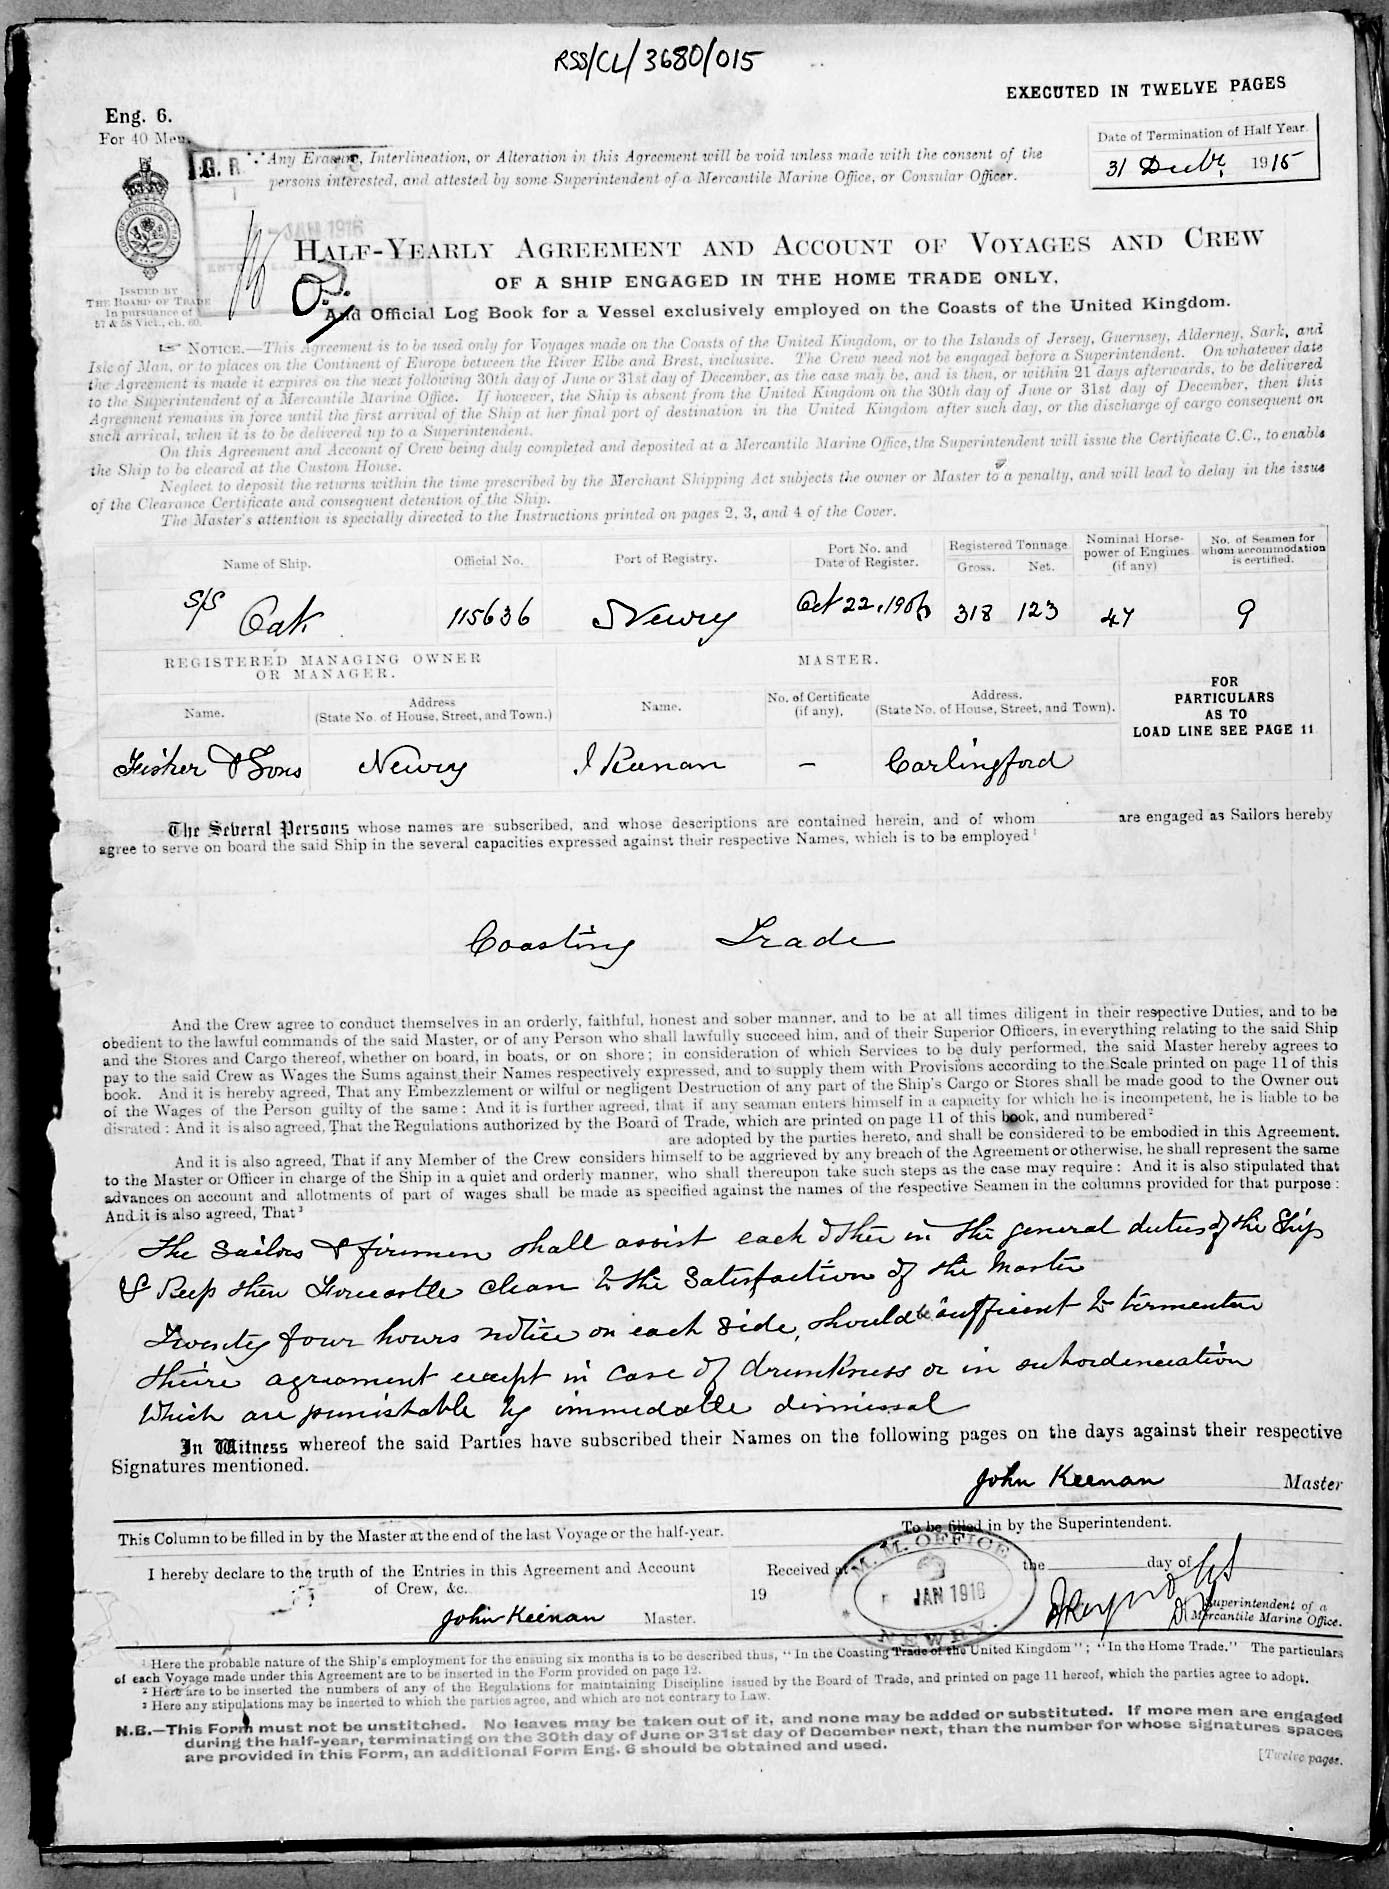 RSS/CL/3680/015
EXECUTED IN TWELVE PAGES
Eng. 6.
For 40 Men.
Date of Termination of Half Year.
31 Decbr. 1915
G. R.
JAN 1916
Any Erasure, Interlineation, or Alteration in this Agreement will be void unless made with the consent of the
persons interested, and attested by some Superintendent of a Mercantile Marine Office, or Consular Officer.
HALF-YEARLY AGREEMENT AND ACCOUNT OF VOYAGES AND CREW
OF A SHIP ENGAGED IN THE HOME TRADE ONLY,
And Official Log Book for a Vessel exclusively employed on the Coasts of the United Kingdom.
ISSUED BY
THE BOARD OF TRADE
In pursuance of
57 & 58 Vict., ch. 60.
☞ NOTICE.—This Agreement is to be used only for Voyages made on the Coasts of the United Kingdom, or to the Islands of Jersey, Guernsey, Alderney, Sark, and
Isle of Man, or to places on the Continent of Europe between the River Elbe and Brest, inclusive. The Crew need not be engaged before a Superintendent. On whatever date
the Agreement is made it expires on the next following 30th day of June or 31st day of December, as the case may be, and is then, or within 21 days afterwards, to be delivered
to the Superintendent of a Mercantile Marine Office. If however, the Ship is absent from the United Kingdom on the 30th day of June or 31st day of December, then this
Agreement remains in force until the first arrival of the Ship at her final port of destination in the United Kingdom after such day, or the discharge of cargo consequent on
such arrival, when it is to be delivered up to a Superintendent.
On this Agreement and Account of Crew being duly completed and deposited at a Mercantile Marine Office, the Superintendent will issue the Certificate C.C., to enable
the Ship to be cleared at the Custom House.
Neglect to deposit the returns within the time prescribed by the Merchant Shipping Act subjects the owner or Master to a penalty, and will lead to delay in the issue
of the Clearance Certificate and consequent detention of the Ship.
The Master's attention is specially directed to the Instructions printed on pages 2, 3, and 4 of the Cover.
Name of Ship. Official No. Port of Registry. Port No. and Date of Register. Registered Tonnage Gross. Net. Nominal Horse-power of Engines (if any) No. of Seamen for whom accommodation is certified.
S/S Oak 115636 Newry Oct 22, 1906 318 123 47 9
REGISTERED MANAGING OWNER
OR MANAGER.
MASTER.
Name. Address (State No. of House, Street, and Town.) Name. No. of Certificate (if any). Address. (State No. of House, Street, and Town).
FOR
PARTICULARS
AS TO
LOAD LINE SEE PAGE 11
Fisher & Sons Newry J Keenan – Carlingford
The Several Persons whose names are subscribed, and whose descriptions are contained herein, and of whom are engaged as Sailors hereby
agree to serve on board the said Ship in the several capacities expressed against their respective Names, which is to be employed¹
Coasting Trade
And the Crew agree to conduct themselves in an orderly, faithful, honest and sober manner, and to be at all times diligent in their respective Duties, and to be
obedient to the lawful commands of the said Master, or of any Person who shall lawfully succeed him, and of their Superior Officers, in everything relating to the said Ship
and the Stores and Cargo thereof, whether on board, in boats, or on shore; in consideration of which Services to be duly performed, the said Master hereby agrees to
pay to the said Crew as Wages the Sums against their Names respectively expressed, and to supply them with Provisions according to the Scale printed on page 11 of this
book. And it is hereby agreed, That any Embezzlement or wilful or negligent Destruction of any part of the Ship's Cargo or Stores shall be made good to the Owner out
of the Wages of the Person guilty of the same: And it is further agreed, that if any seaman enters himself in a capacity for which he is incompetent, he is liable to be
disrated: And it is also agreed, That the Regulations authorized by the Board of Trade, which are printed on page 11 of this book, and numbered²
are adopted by the parties hereto, and shall be considered to be embodied in this Agreement.
And it is also agreed, That if any Member of the Crew considers himself to be aggrieved by any breach of the Agreement or otherwise, he shall represent the same
to the Master or Officer in charge of the Ship in a quiet and orderly manner, who shall thereupon take such steps as the case may require: And it is also stipulated that
advances on account and allotments of part of wages shall be made as specified against the names of the respective Seamen in the columns provided for that purpose:
And it is also agreed, That³
The Sailors & firemen shall assist each other in the general duties of the Ship
& Keep their Forecastle clean to the Satisfaction of the Master
Twenty four hours notice on each side, should be sufficient to termenate
theire agreament except in Case of drunkness or in subordenation
Which are punishable by immedatle dismissal
In Witness whereof the said Parties have subscribed their Names on the following pages on the days against their respective
Signatures mentioned.
John Keenan Master
This Column to be filled in by the Master at the end of the last Voyage or the half-year.
To be filled in by the Superintendent.
I hereby declare to the truth of the Entries in this Agreement and Account
of Crew, &c.
John Keenan Master.
Received at the day of
19
M. M. OFFICE
JAN 1916
NEWRY.
Superintendent of a
Mercantile Marine Office.
¹ Here the probable nature of the Ship's employment for the ensuing six months is to be described thus, "In the Coasting Trade of the United Kingdom"; "In the Home Trade." The particulars
of each Voyage made under this Agreement are to be inserted in the Form provided on page 12.
² Here are to be inserted the numbers of any of the Regulations for maintaining Discipline issued by the Board of Trade, and printed on page 11 hereof, which the parties agree to adopt.
³ Here any stipulations may be inserted to which the parties agree, and which are not contrary to Law.
N.B.—This Form must not be unstitched. No leaves may be taken out of it, and none may be added or substituted. If more men are engaged
during the half-year, terminating on the 30th day of June or 31st day of December next, than the number for whose signatures spaces
are provided in this Form, an additional Form Eng. 6 should be obtained and used.
[Twelve pages.